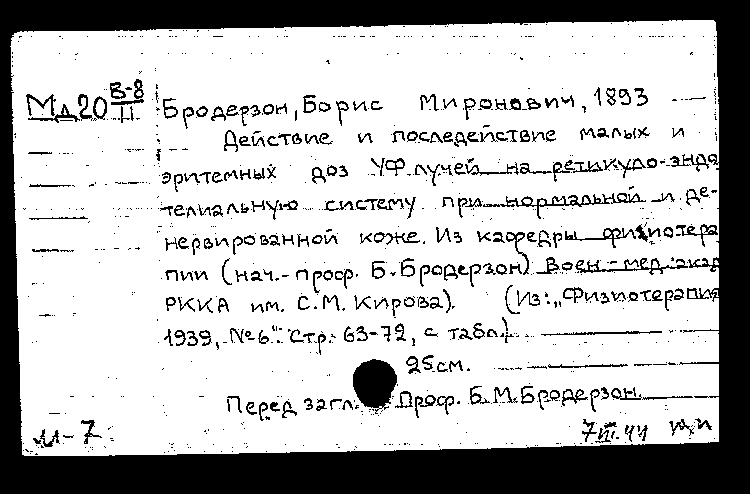 Мд20 В-8/II
Бродерзон, Борис Миронович, 1893
Действие и последействие малых и
эритемных доз УФ.лучей на ретикудо-эндо
телиальную систему при нормальной и де-
нервированной коже. Из кафедры физиотера
пии (нач.-проф. Б.Бродерзон) Воен.-мед.акад
РККА им. С.М.Кирова). (Из: „Физиотерапия
1939, №6". Стр. 63-72, с табл.)
25см.
Перед загл. Проф. Б.М.Бродерзон.
м-7
7 III.44